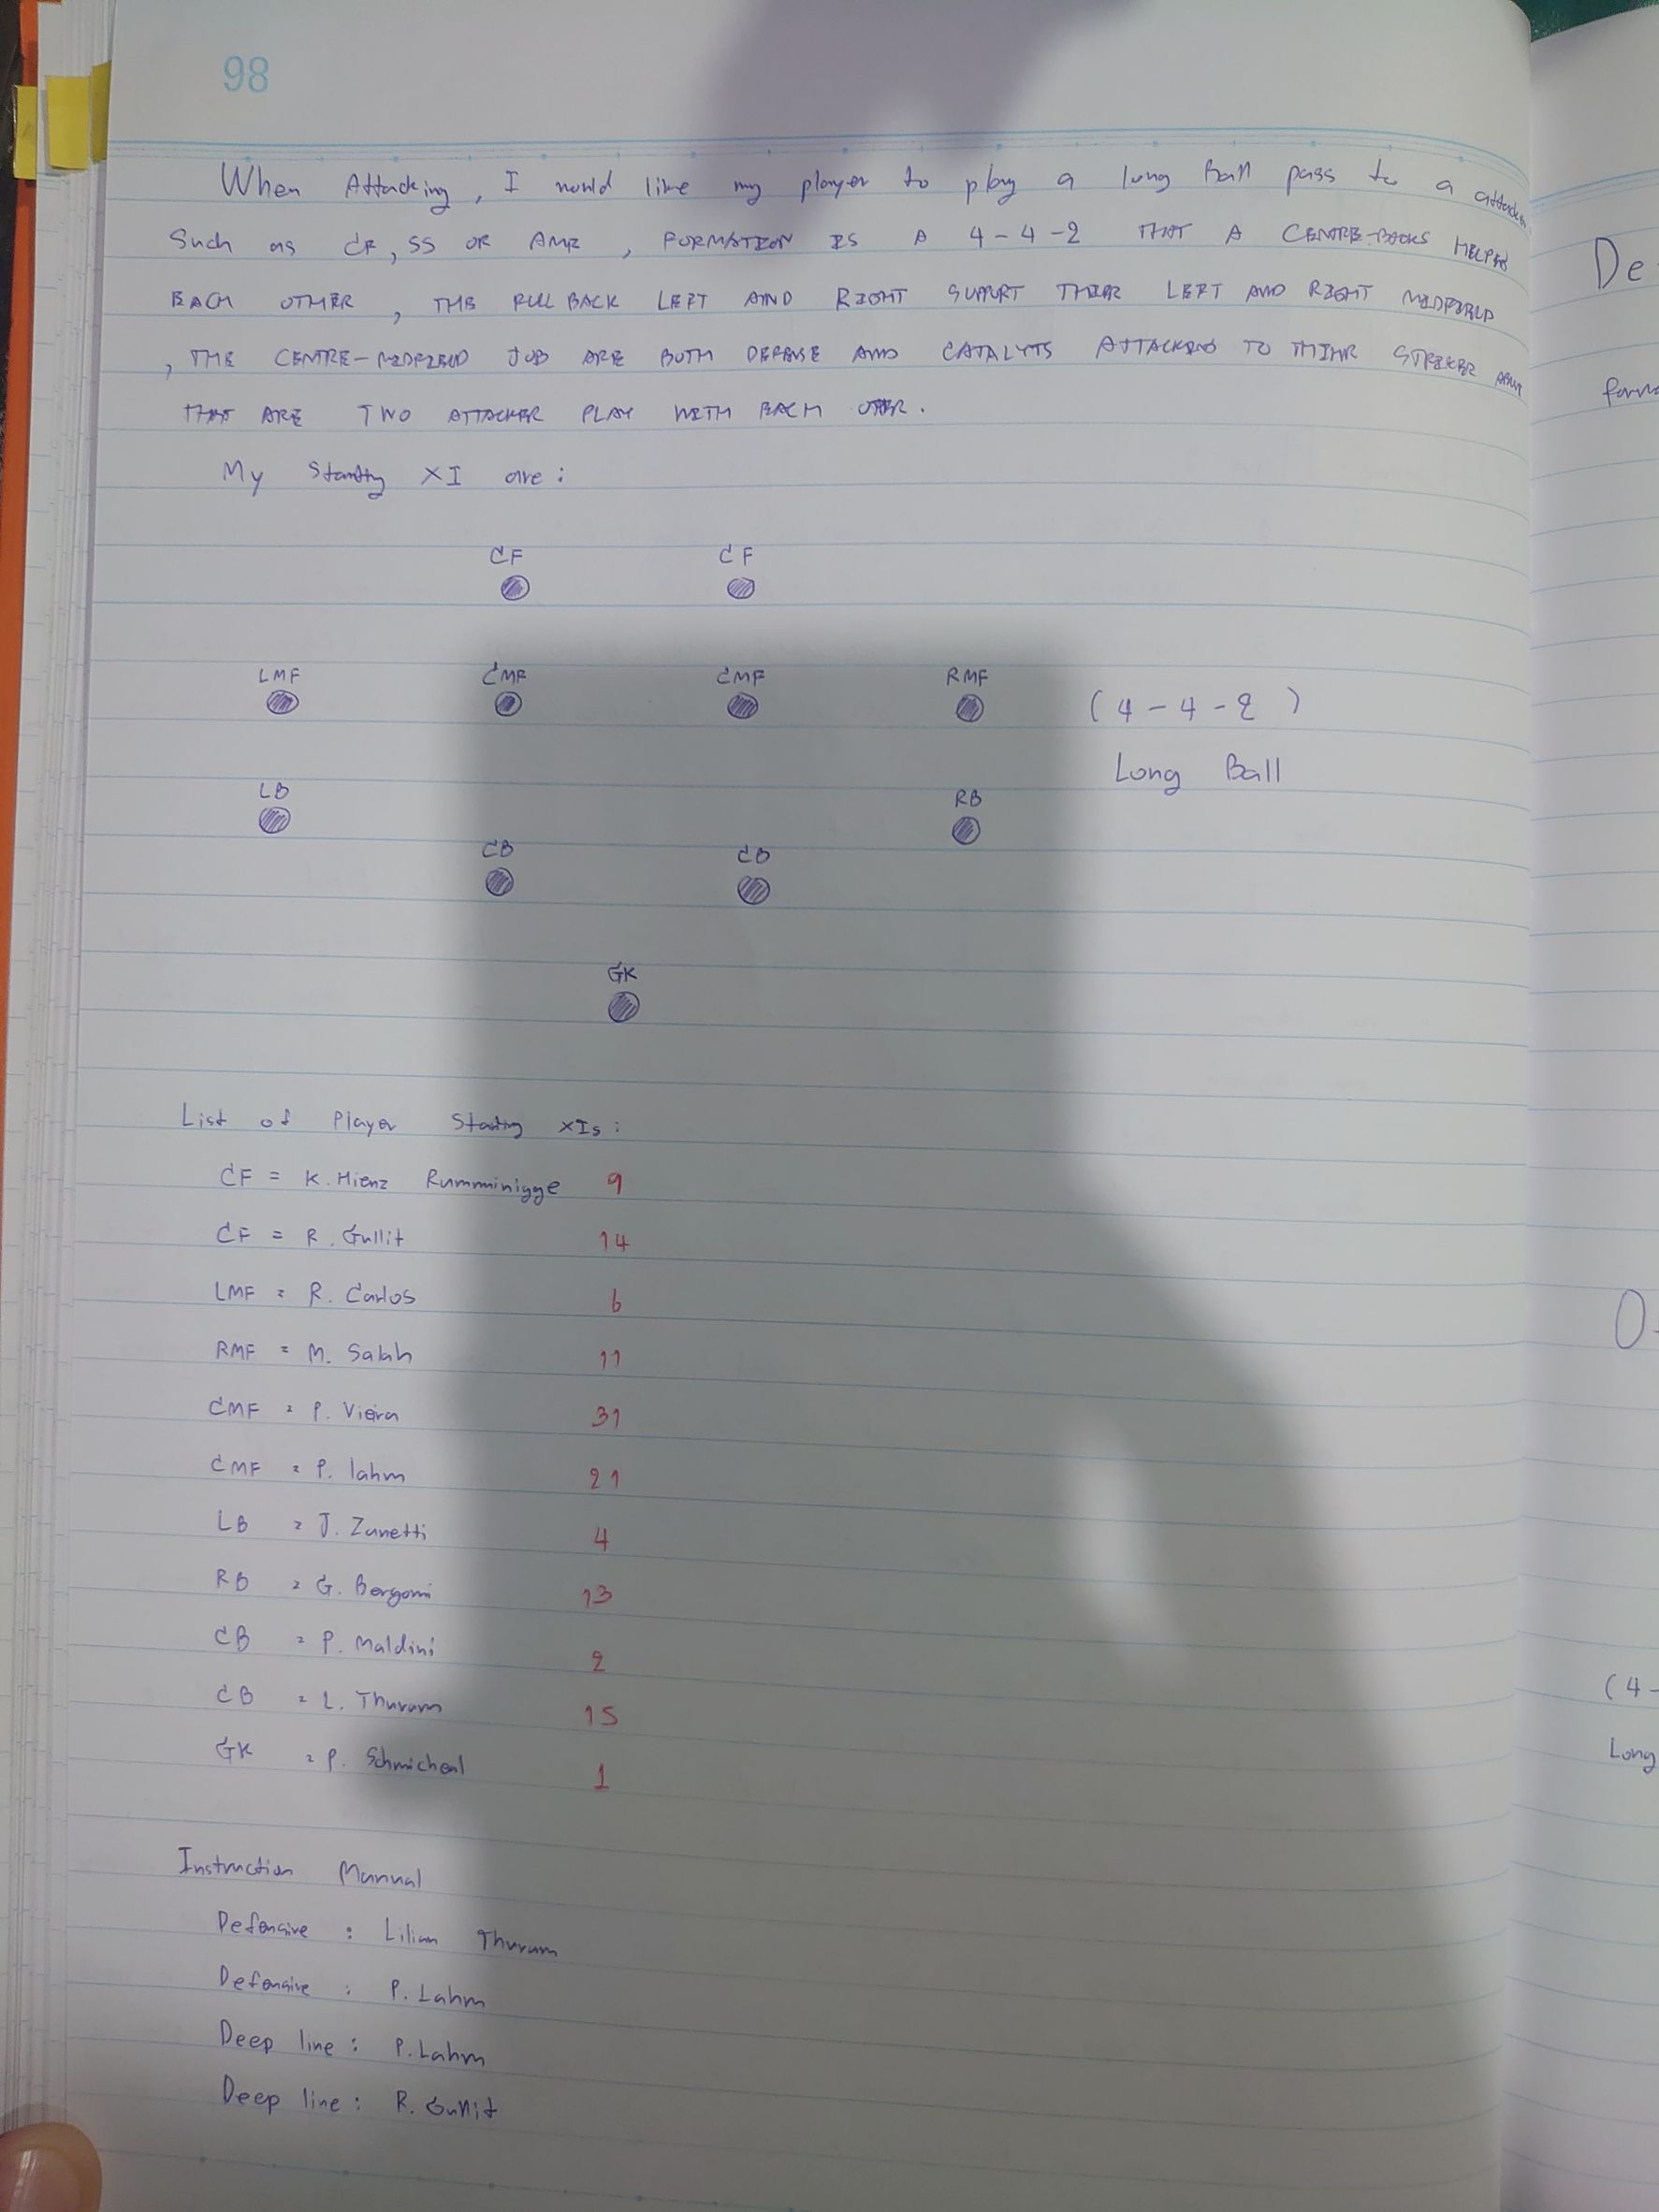 98
When Attacking, I would like my player to play a long Ball pass to a attacker
Such as CF, SS OR AMF, FORMATION IS A 4-4-2 THAT A CENTRE-BACKS HELPED
EACH OTHER, THE FULL BACK LEFT AND RIGHT SUPPORT THEIR LEFT AND RIGHT MIDFIELD
, THE CENTRE-MIDFIELD JOB ARE BOTH DEFENSE AND CATALYTS ATTACKING TO THEIR STRIKER
THAT ARE TWO ATTACKER PLAY WITH EACH OTHER.
My Starting XI are:
CF CF
LMF CMF CMF RMF
(4-4-2)
Long Ball
LB RB
CB CB
GK
List of Player Starting XIs:
CF = K. Hienz Rumminigge 9
CF = R. Gullit 14
LMF = R. Carlos 6
RMF = M. Salah 11
CMF = P. Vieira 31
CMF = P. lahm 21
LB = J. Zanetti 4
RB = G. Bergomi 13
CB = P. Maldini 2
CB = L. Thuram 15
GK = P. Schmicheal 1
Instruction Manual
Defensive : Lilian Thuram
Defensive : P. Lahm
Deep line : P. Lahm
Deep line : R. Gullit
De
form
O
(4-
Long